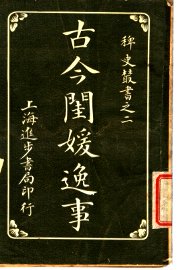 稗史叢書之二
古今閨媛逸事
上海進步書局印行